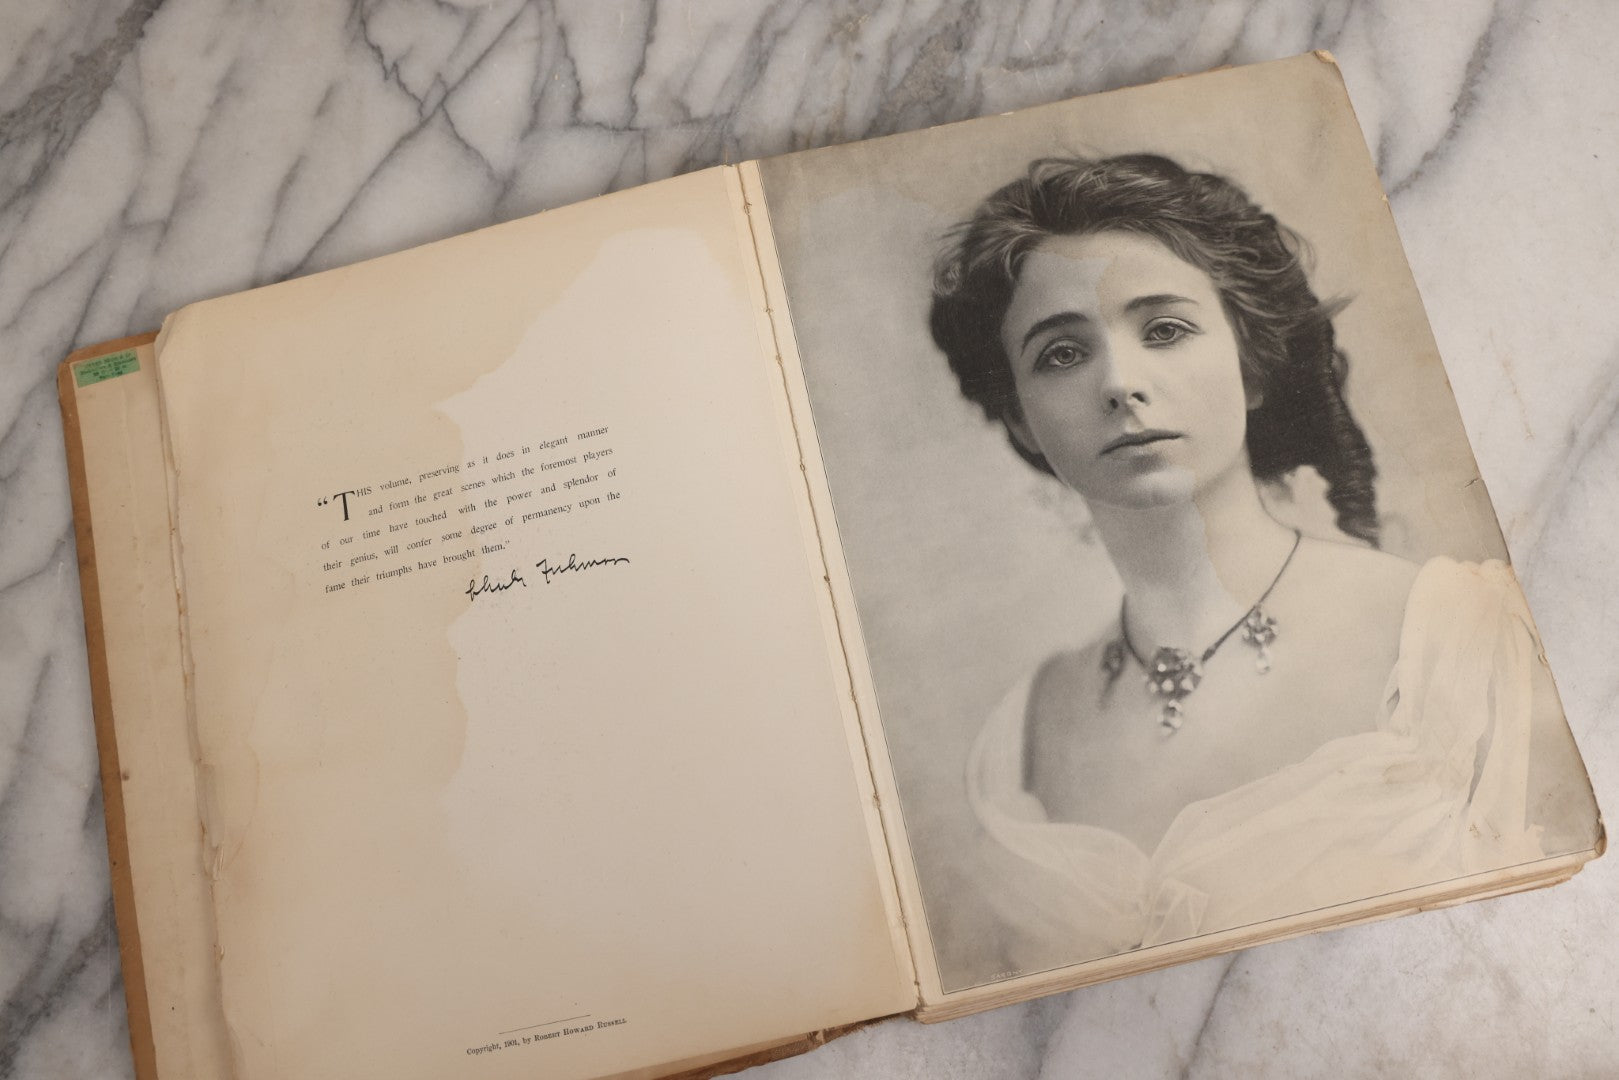 “THIS volume, preserving as it does in elegant manner
and form the great scenes which the foremost players
of our time have touched with the power and splendor of
their genius, will confer some degree of permanency upon the
fame their triumphs have brought them.”
Charles Frohman
Copyright, 1901, by ROBERT HOWARD RUSSELL
SARONY